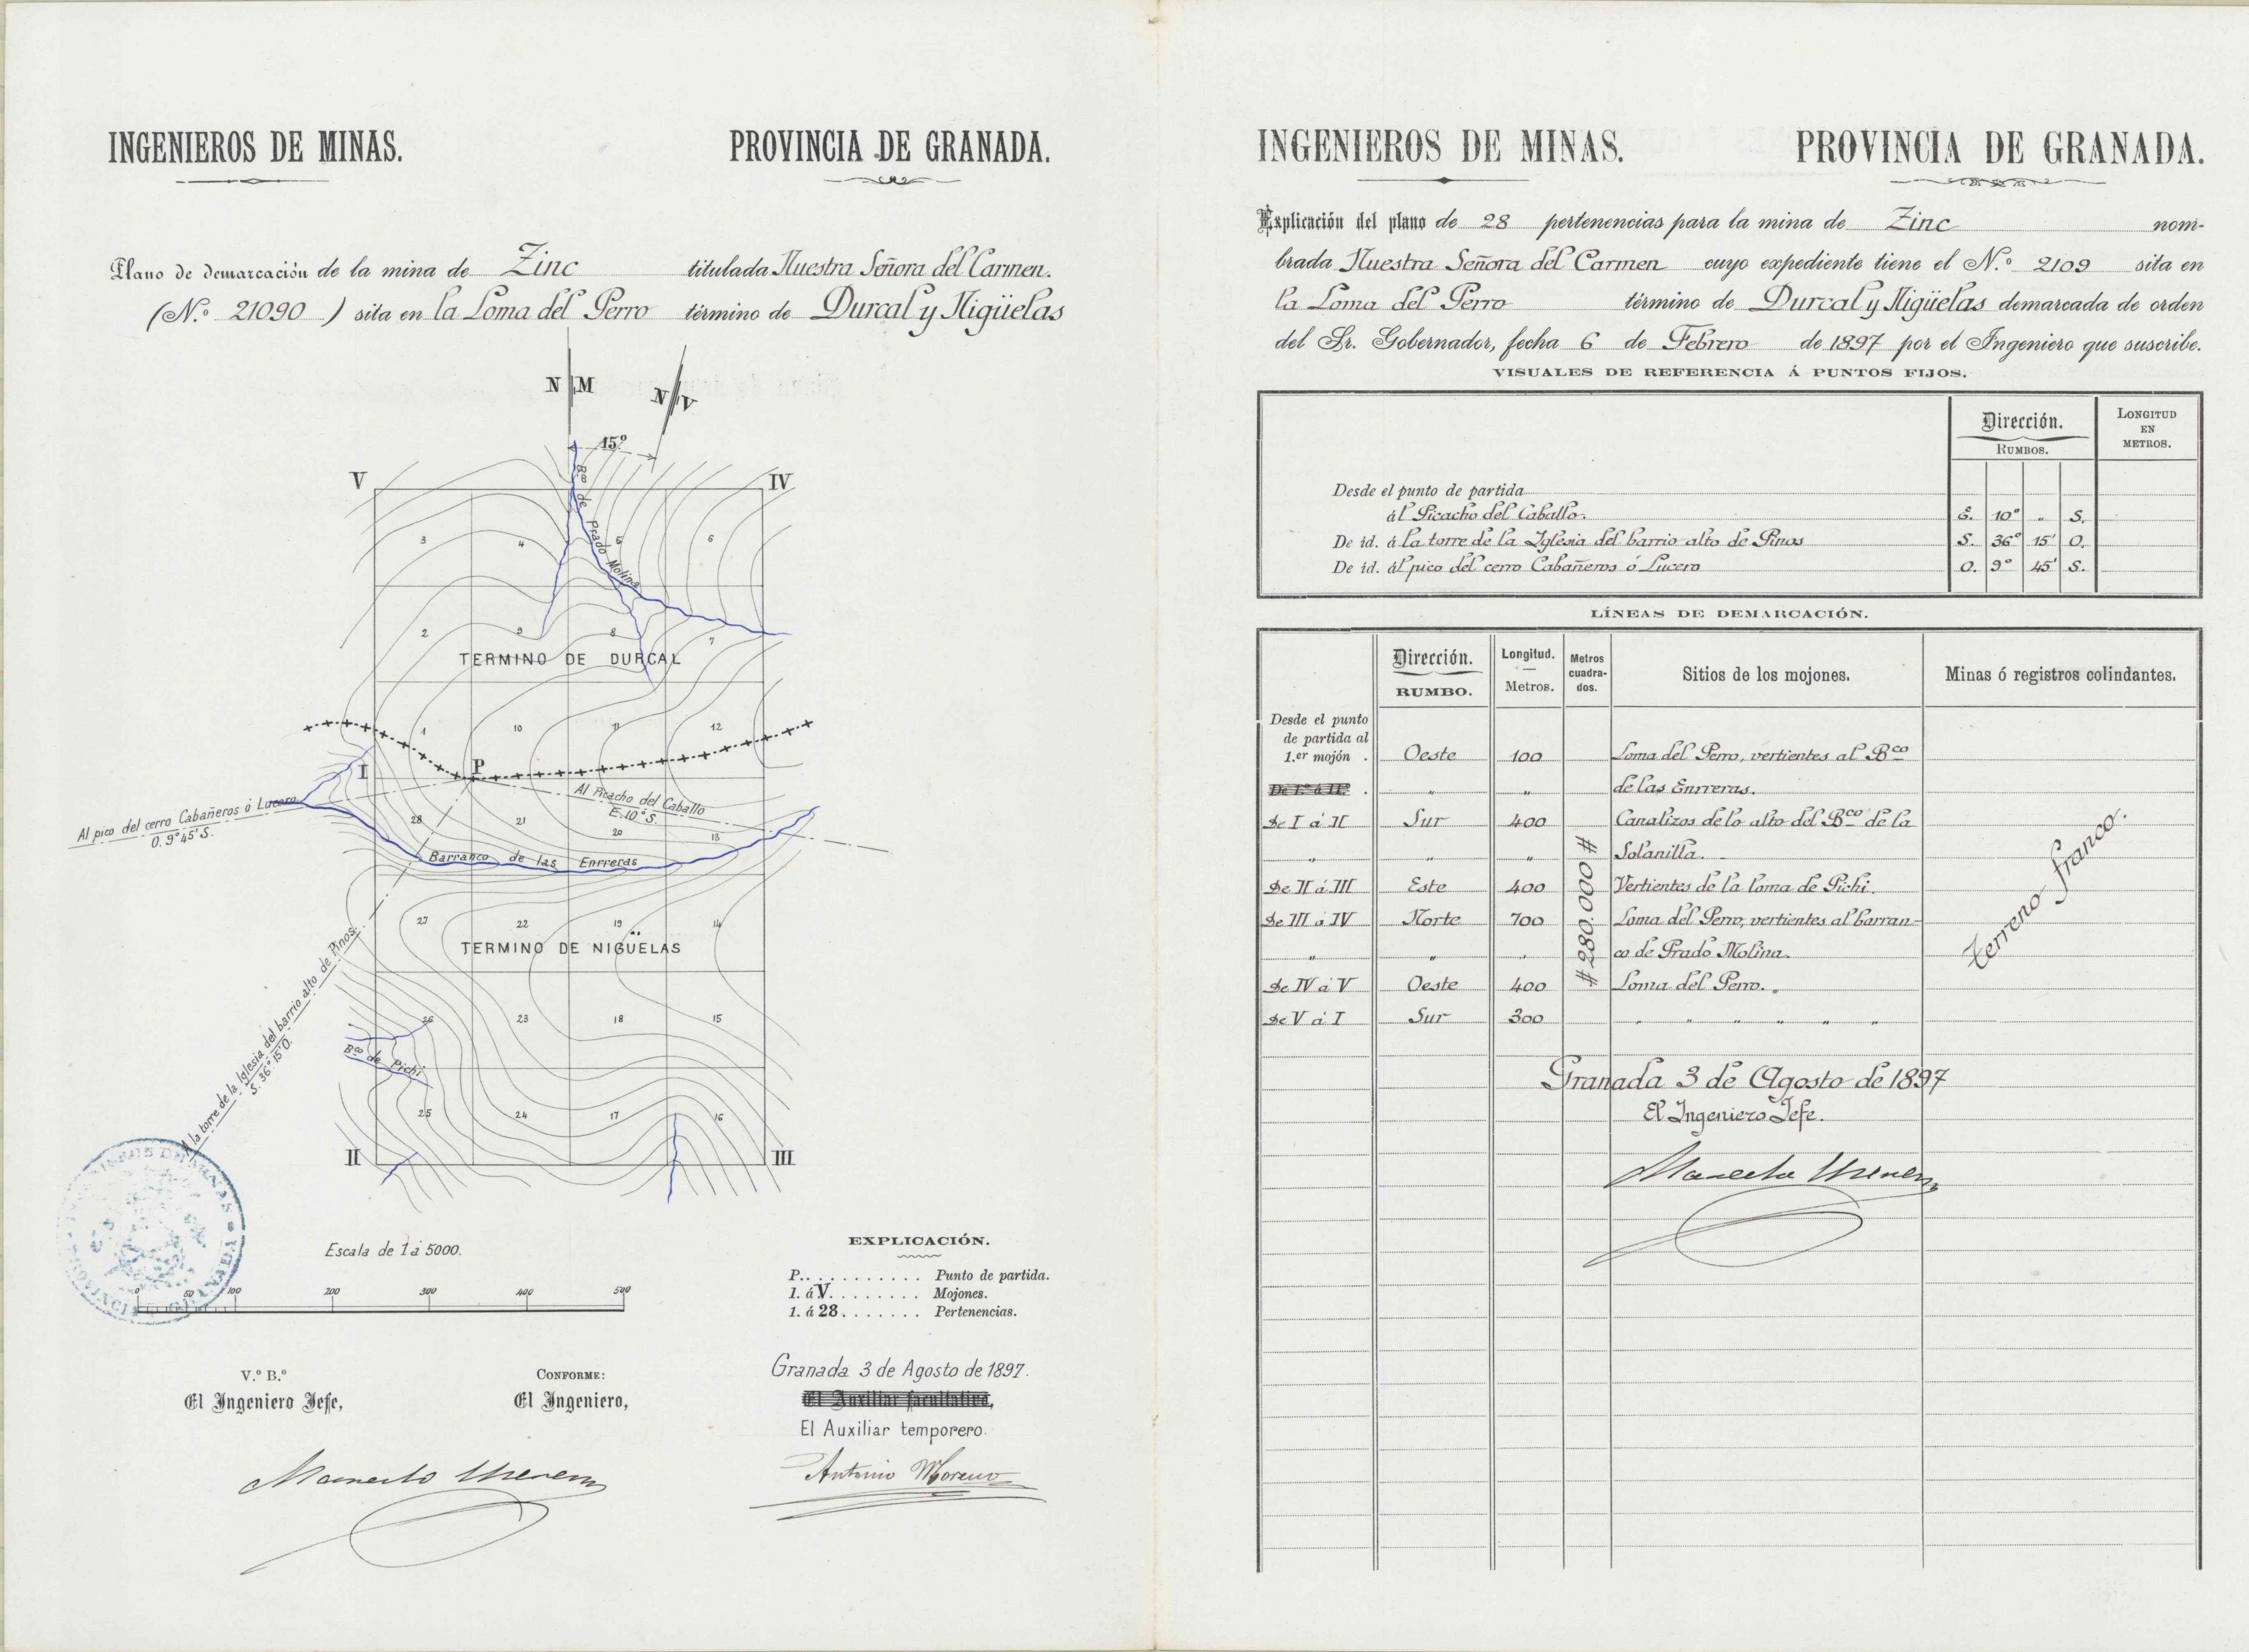 INGENIEROS DE MINAS.
PROVINCIA DE GRANADA.
Plano de demarcación de la mina de Zinc titulada Nuestra Señora del Carmen.
(N.º 21090 ) sita en la Loma del Perro término de Durcal y Nigüelas
N M
N V
15º
V
IV
Bco de Prado Molina
3
4
5
6
2
9
8
7
TERMINO DE DURCAL
1
10
11
12
I
P
Al Picacho del Caballo
E. 10º S.
Al pico del cerro Cabañeros ó Lucero
O. 9º 45' S.
28
21
20
13
Barranco de las Enrreras
27
22
19
14
TERMINO DE NIGÜELAS
A la torre de la Iglesia del barrio alto de Pinos.
S. 36º 15' O.
26
23
18
15
Bco de Pichi
25
24
17
16
II
III
INGENIEROS DE MINAS
PROVINCIA DE GRANADA
Escala de 1 á 5000.
0 50 100 200 300 400 500
EXPLICACIÓN.
P. . . . . . . . . . . . Punto de partida.
1. á V. . . . . . . . . Mojones.
1. á 28. . . . . . . . Pertenencias.
Granada 3 de Agosto de 1897.
V.º B.º
El Ingeniero Jefe,
CONFORME:
El Ingeniero,
El Auxiliar facultativo,
El Auxiliar temporero.
Antonio Moreno
INGENIEROS DE MINAS.
PROVINCIA DE GRANADA.
Explicación del plano de 28 pertenencias para la mina de Zinc nom-
brada Nuestra Señora del Carmen cuyo expediente tiene el N.º 2109 sita en
la Loma del Perro término de Durcal y Nigüelas demarcada de orden
del Sr. Gobernador, fecha 6 de Febrero de 1897 por el Ingeniero que suscribe.
VISUALES DE REFERENCIA Á PUNTOS FIJOS.
Dirección.
RUMBOS.
LONGITUD EN METROS.
Desde el punto de partida
ál Picacho del Caballo. E. 10º „ S.
De id. á la torre de la Iglesia del barrio alto de Pinos S. 36º 15' O.
De id. ál pico del cerro Cabañeros ó Lucero O. 9º 45' S.
LÍNEAS DE DEMARCACIÓN.
Dirección. RUMBO.
Longitud. — Metros.
Metros cuadra-dos.
Sitios de los mojones.
Minas ó registros colindantes.
Desde el punto
de partida al
1.er mojón . Oeste 100 Loma del Perro, vertientes al Bco
De I.º á II.º . „ „ de las Enrreras.
De I á II Sur 400 Canalizos de lo alto del Bco de la
„ „ „ Solanilla.
De II á III Este 400 Vertientes de la loma de Pichi.
De III á IV Norte 700 Loma del Perro, vertientes al barran-
„ „ „ co de Prado Molina.
De IV á V Oeste 400 Loma del Perro.
De V á I Sur 300 „ „ „ „ „ „
# 280.000 #
Terreno franco.
Granada 3 de Agosto de 1897
El Ingeniero Jefe.